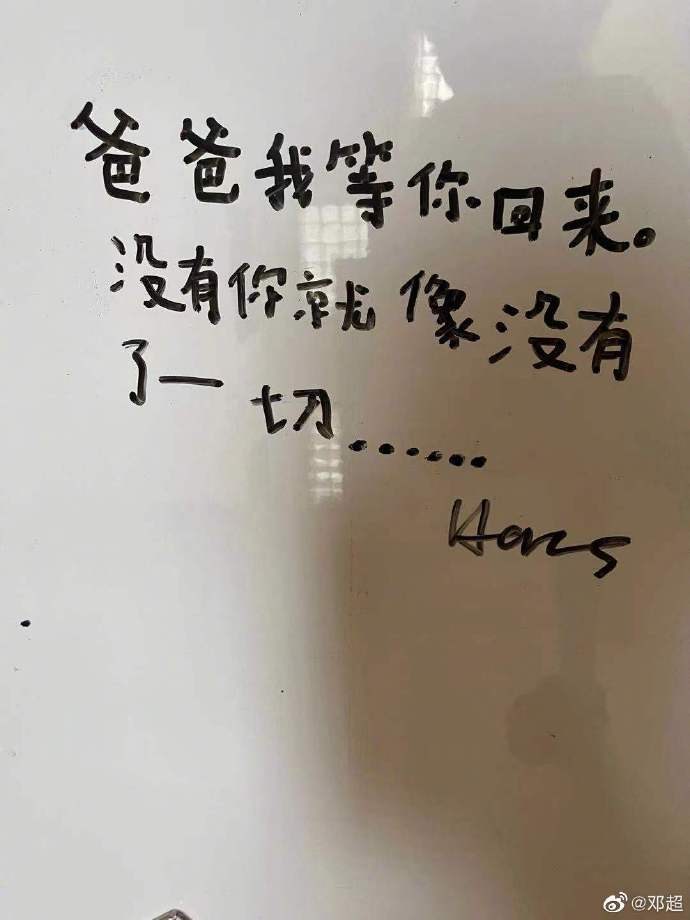 爸爸我等你回来。
没有你就像没有
了一切……
Hans
@邓超